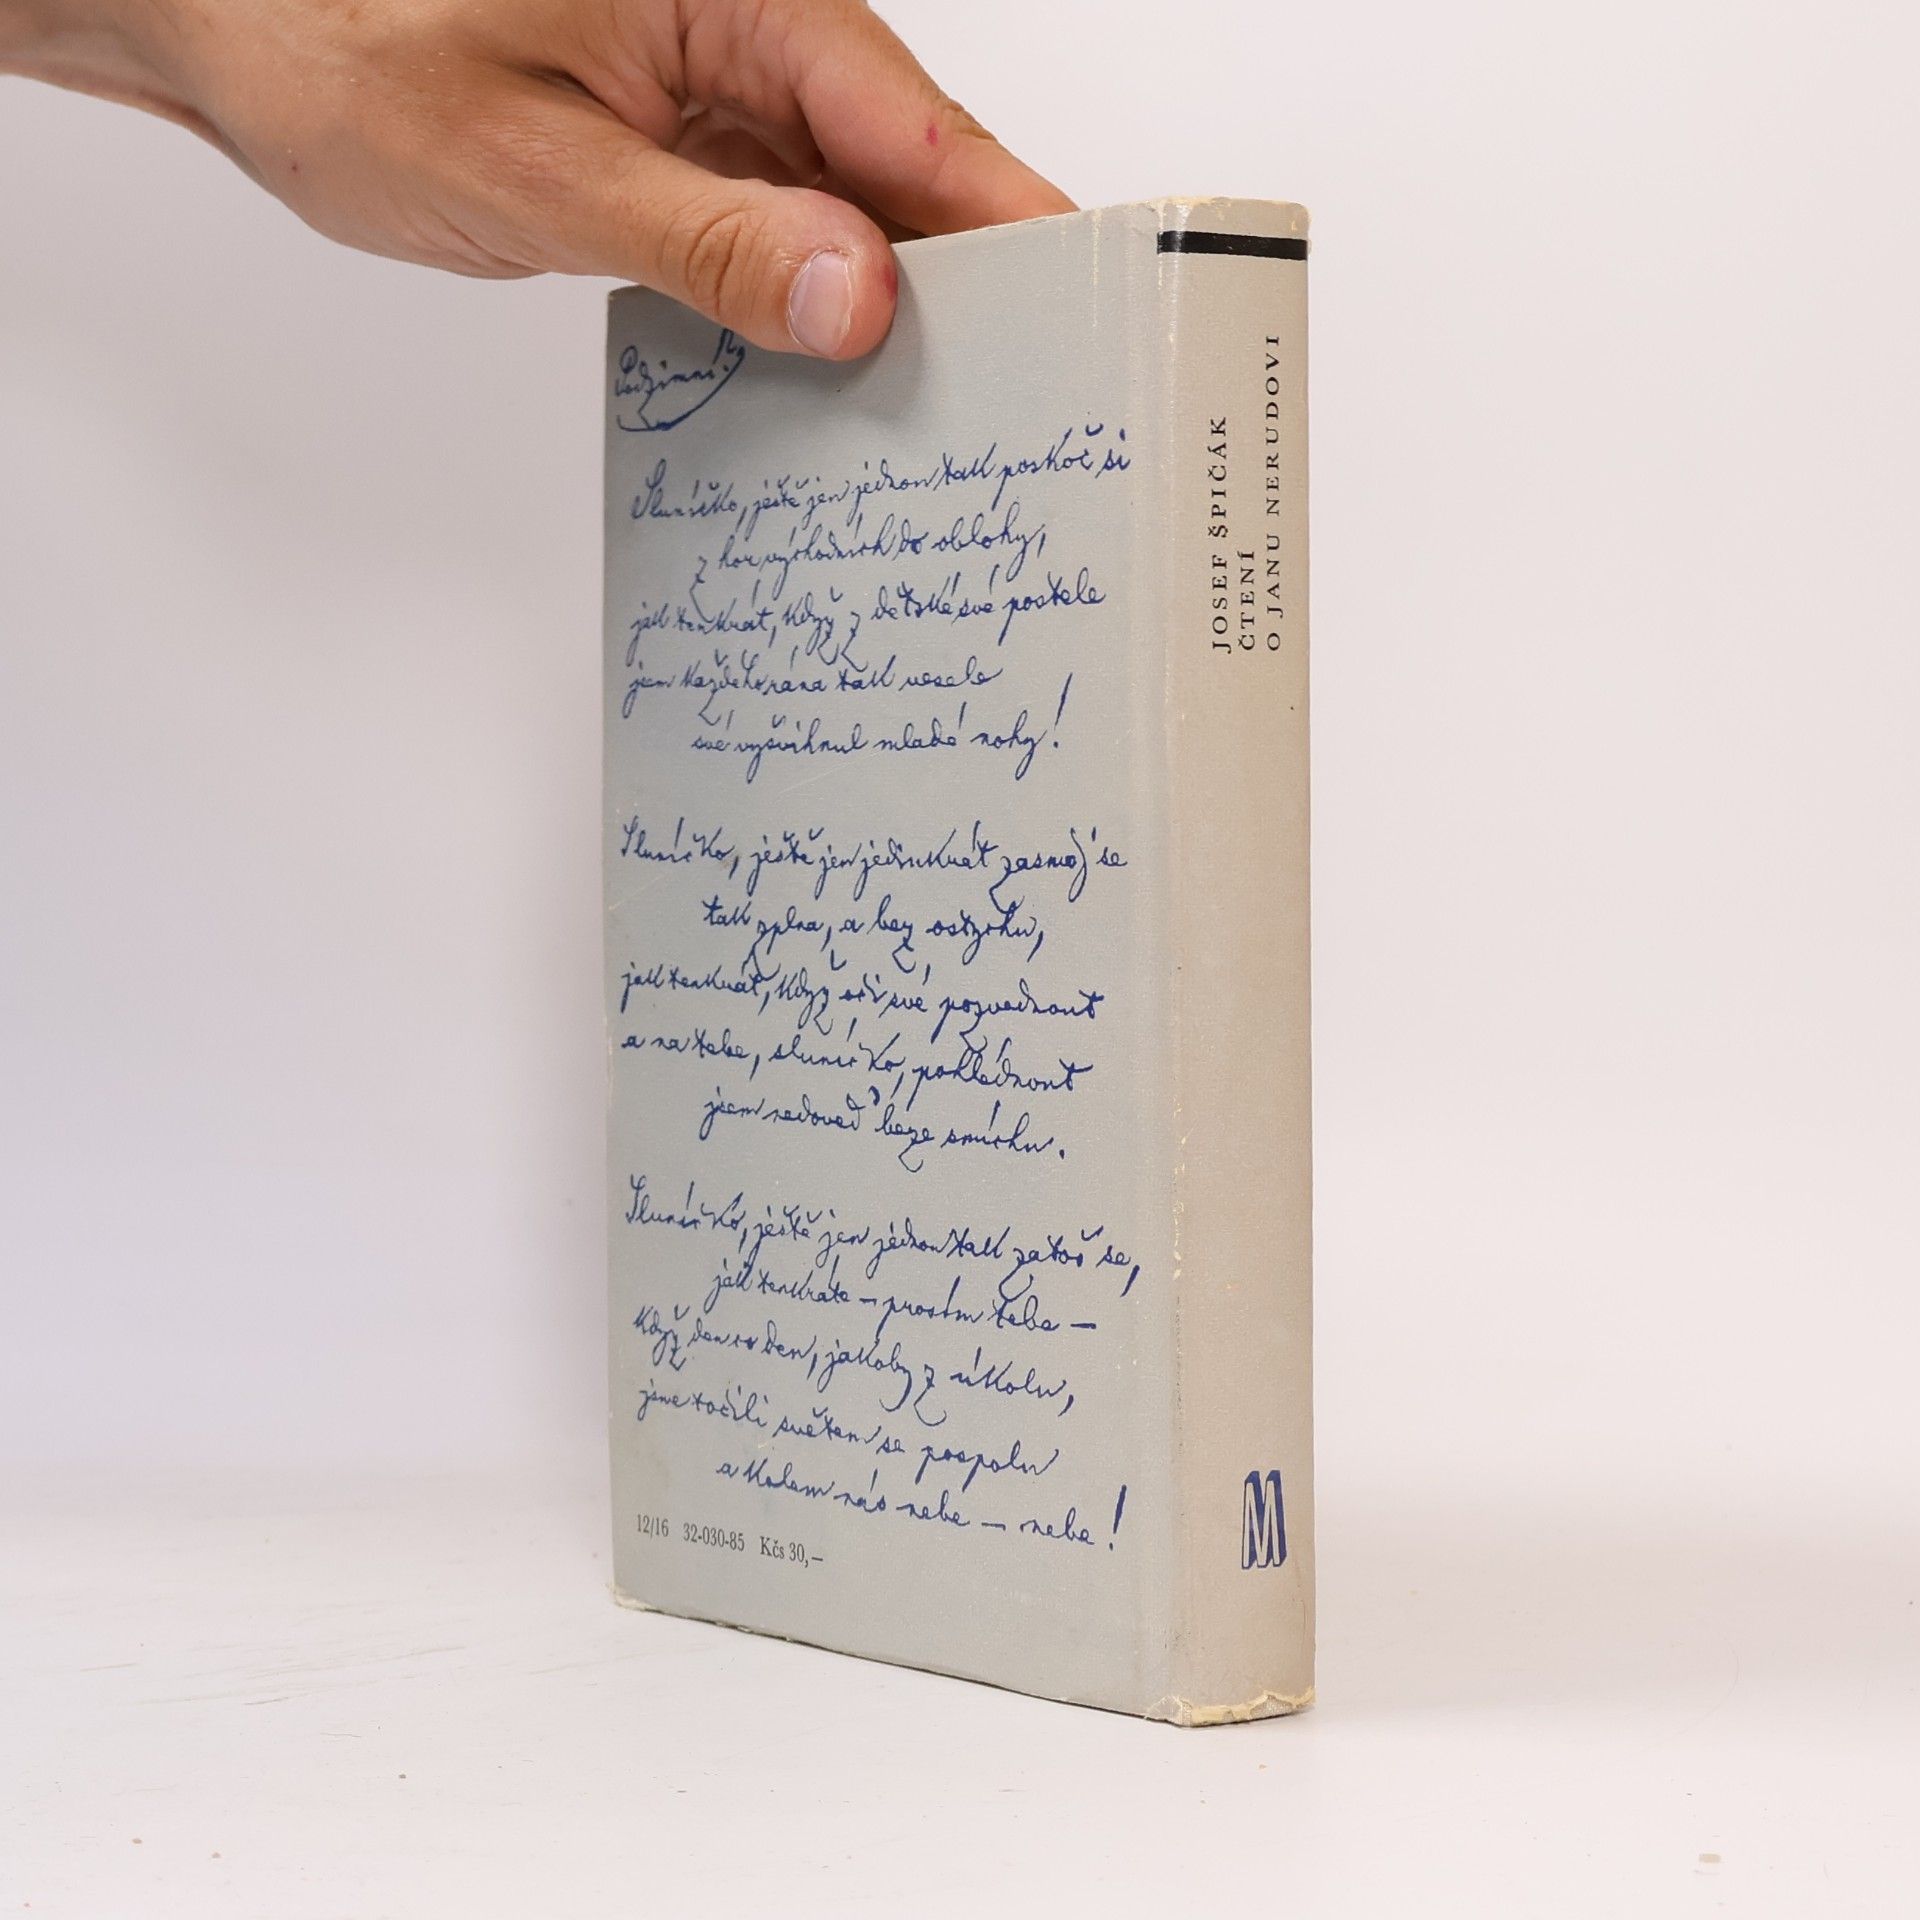 Podzimní.
Sluníčko, ještě jen jednou tak poskoč si
z hor východních do oblohy,
jak tenkrát, když z dětské své postele
jsem každého rána tak vesele
své vyšvihnul mladé nohy!
Sluníčko, ještě jen jedinkrát zasměj se
tak zplna, a bez ostychu,
jak tenkrát, když oči své pozvednout
a na tebe, sluníčko, pohlédnout
jsem nedoved' beze smíchu.
Sluníčko, ještě jen jednou tak zatoč se,
jak tenkráte – prosím tebe –
když den co den, jakoby z úkolu,
jsme točili světem se pospolu
a kolem nás nebe – nebe!
12/16 32-030-85 Kčs 30,–
JOSEF ŠPIČÁK
ČTENÍ
O JANU NERUDOVI
M